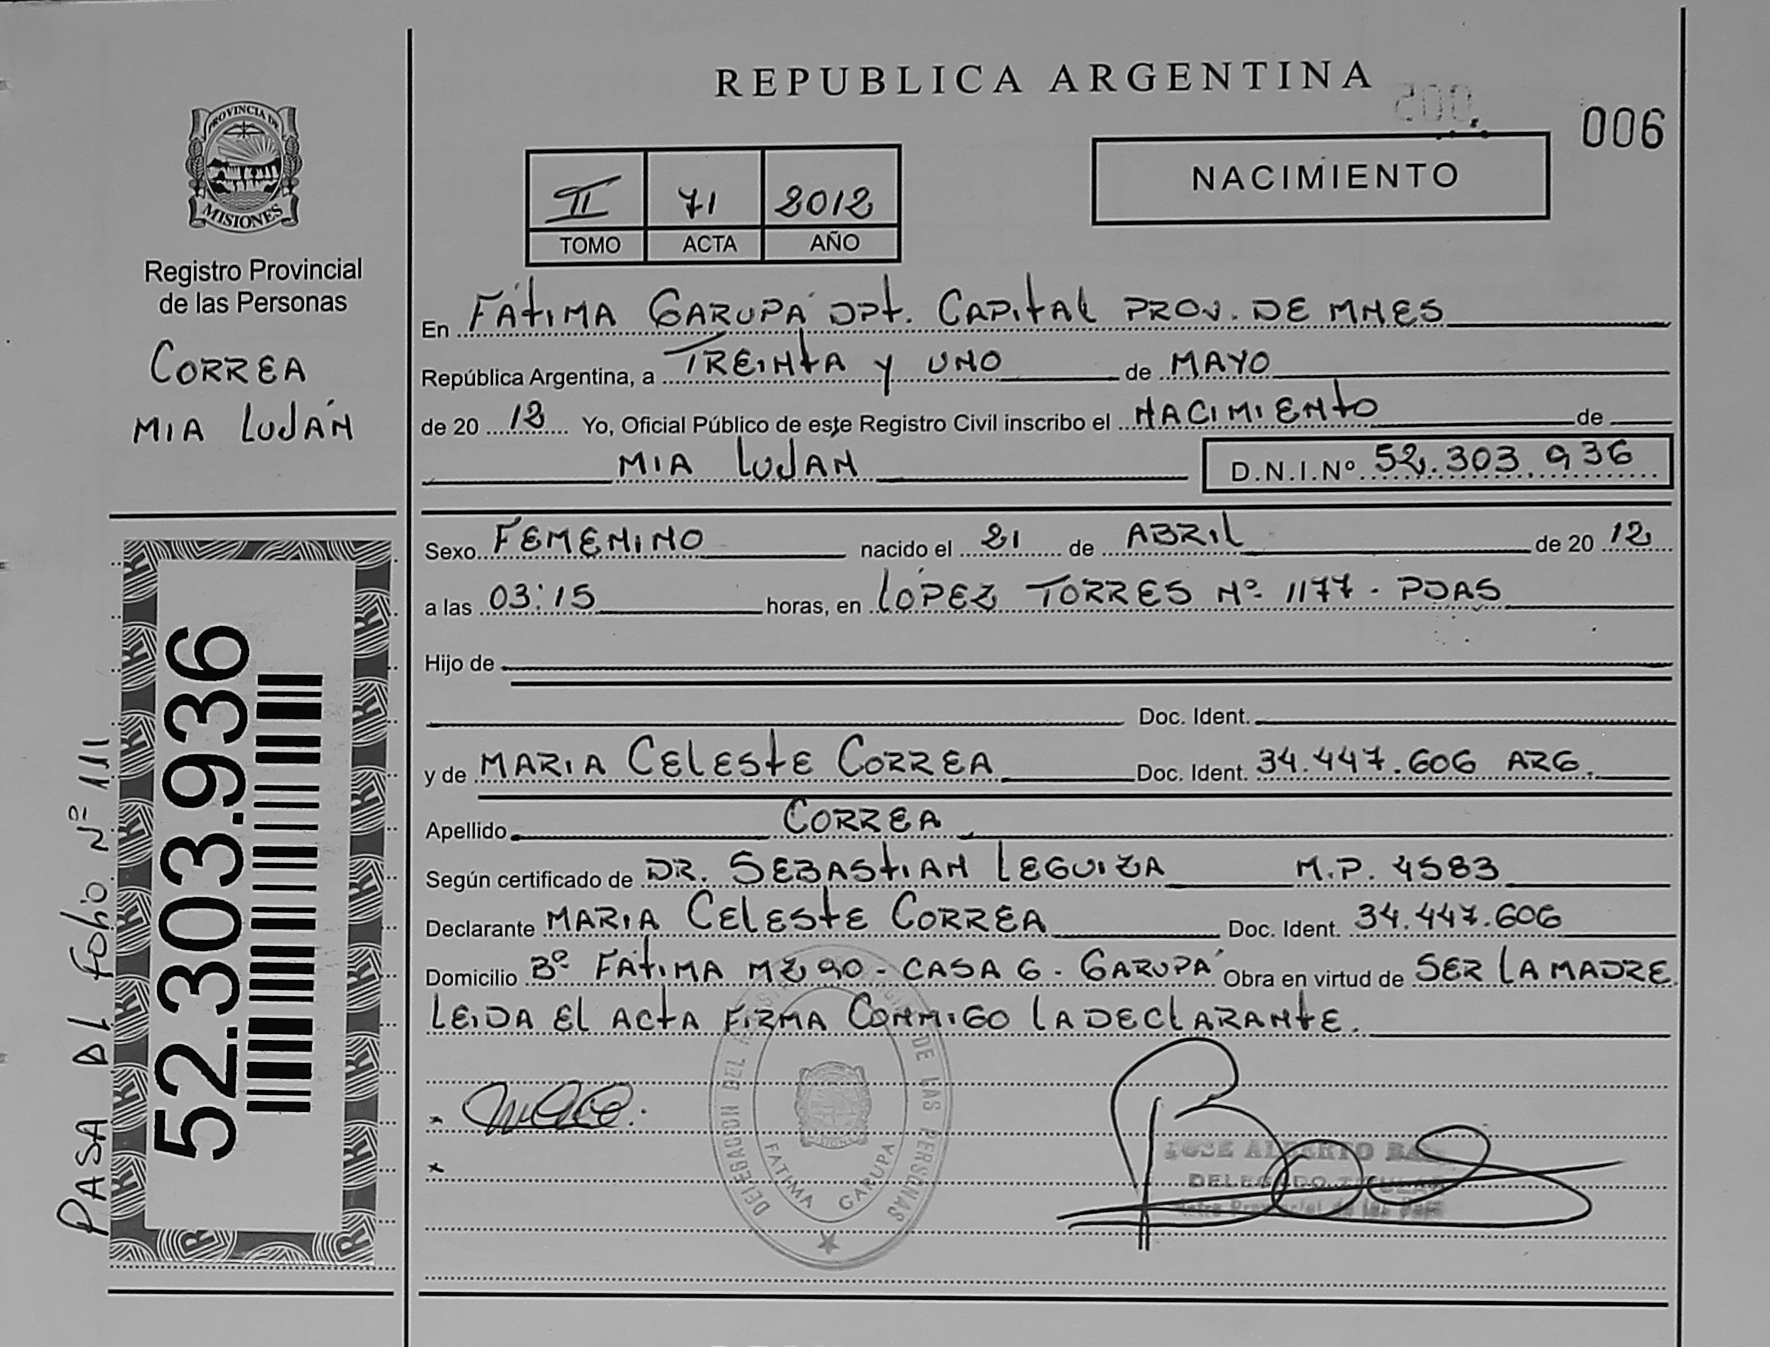 REPUBLICA ARGENTINA
005
006
NACIMIENTO
II 71 2012
TOMO ACTA AÑO
PROVINCIA DE
MISIONES
Registro Provincial
de las Personas
CORREA
MIA LUJÁN
En FÁTIMA GARUPÁ DPT. CAPITAL PROV. DE MNES
República Argentina, a TREINTA Y UNO de MAYO
de 20 12 Yo, Oficial Público de este Registro Civil inscribo el NACIMIENTO de
MIA LUJAN D.N.I.Nº 52.303.936
Sexo FEMENINO nacido el 21 de ABRIL de 20 12
a las 03:15 horas, en LÓPEZ TORRES Nº 1177 - PDAS
Hijo de
Doc. Ident.
y de MARIA CELESTE CORREA Doc. Ident. 34.447.606 ARG.
Apellido CORREA
Según certificado de DR. SEBASTIAN LEGUIZA M.P. 4583
Declarante MARIA CELESTE CORREA Doc. Ident. 34.447.606
Domicilio Bº FÁTIMA MZ 90 - CASA 6 - GARUPÁ Obra en virtud de SER LA MADRE
LEIDA EL ACTA FIRMA CONMIGO LA DECLARANTE.
DELEGACION DEL DE LAS PERSONAS
FATIMA GARUPA
JOSE ALBERTO
DELEGADO TITULAR
52.303.936
PASA AL Folio Nº 111